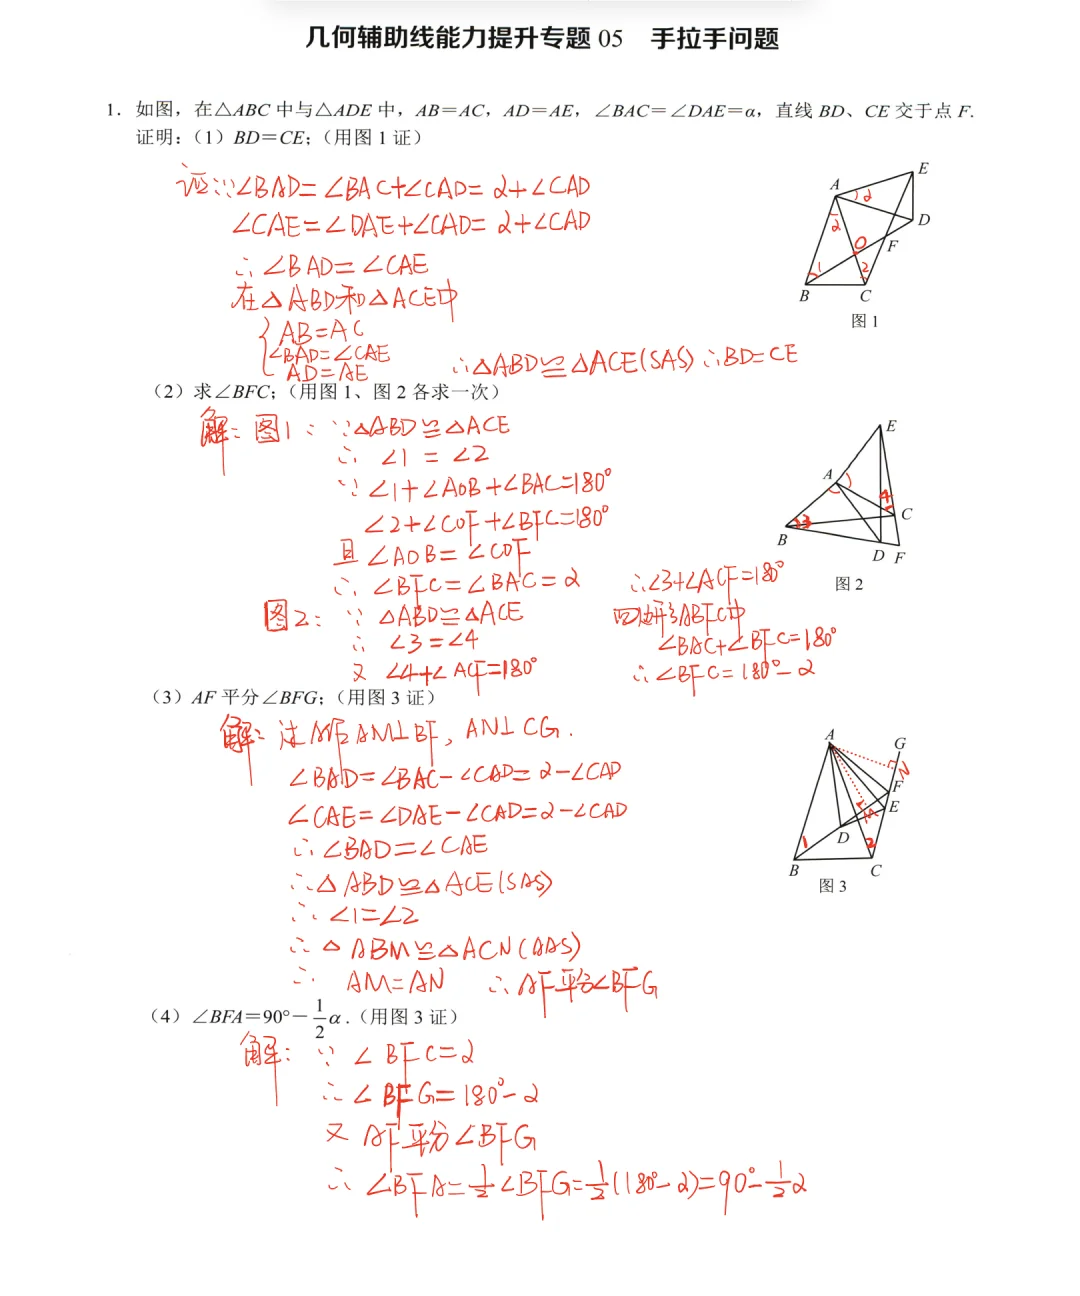 几何辅助线能力提升专题 05 手拉手问题
1. 如图，在△ABC 中与△ADE 中，AB＝AC，AD＝AE，∠BAC＝∠DAE＝α，直线 BD、CE 交于点 F.
证明：（1）BD＝CE；（用图 1 证）
证：∵∠BAD=∠BAC+∠CAD=α+∠CAD
∠CAE=∠DAE+∠CAD=α+∠CAD
∴∠BAD=∠CAE
在△ABD和△ACE中
AB=AC
∠BAD=∠CAE
AD=AE
∴△ABD≌△ACE(SAS) ∴BD=CE
E
A
α
α
D
O
F
1
2
B
C
图 1
（2）求∠BFC；（用图 1、图 2 各求一次）
解：图1：∵△ABD≌△ACE
∴ ∠1=∠2
∵ ∠1+∠AOB+∠BAC=180°
∠2+∠COF+∠BFC=180°
且∠AOB=∠COF
∴∠BFC=∠BAC=α
图2：∵ △ABD≌△ACE
∴ ∠3=∠4
又 ∠4+∠ACF=180°
∴∠3+∠ACF=180°
四边形ABFC中
∠BAC+∠BFC=180°
∴∠BFC=180°-α
E
A
4
C
3
B
D F
图 2
（3）AF 平分∠BFG；（用图 3 证）
解：过A作AM⊥BF，AN⊥CG.
∠BAD=∠BAC-∠CAD=α-∠CAD
∠CAE=∠DAE-∠CAD=α-∠CAD
∴∠BAD=∠CAE
∴△ABD≌△ACE(SAS)
∴∠1=∠2
∴△ABM≌△ACN(AAS)
∴ AM=AN ∴AF平分∠BFG
A
G
N
F
E
D
1
2
B
C
图 3
（4）∠BFA＝90°－1/2α.（用图 3 证）
解：∵∠BFC=α
∴∠BFG=180°-α
又 AF平分∠BFG
∴∠BFA=1/2∠BFG=1/2(180°-α)=90°-1/2α